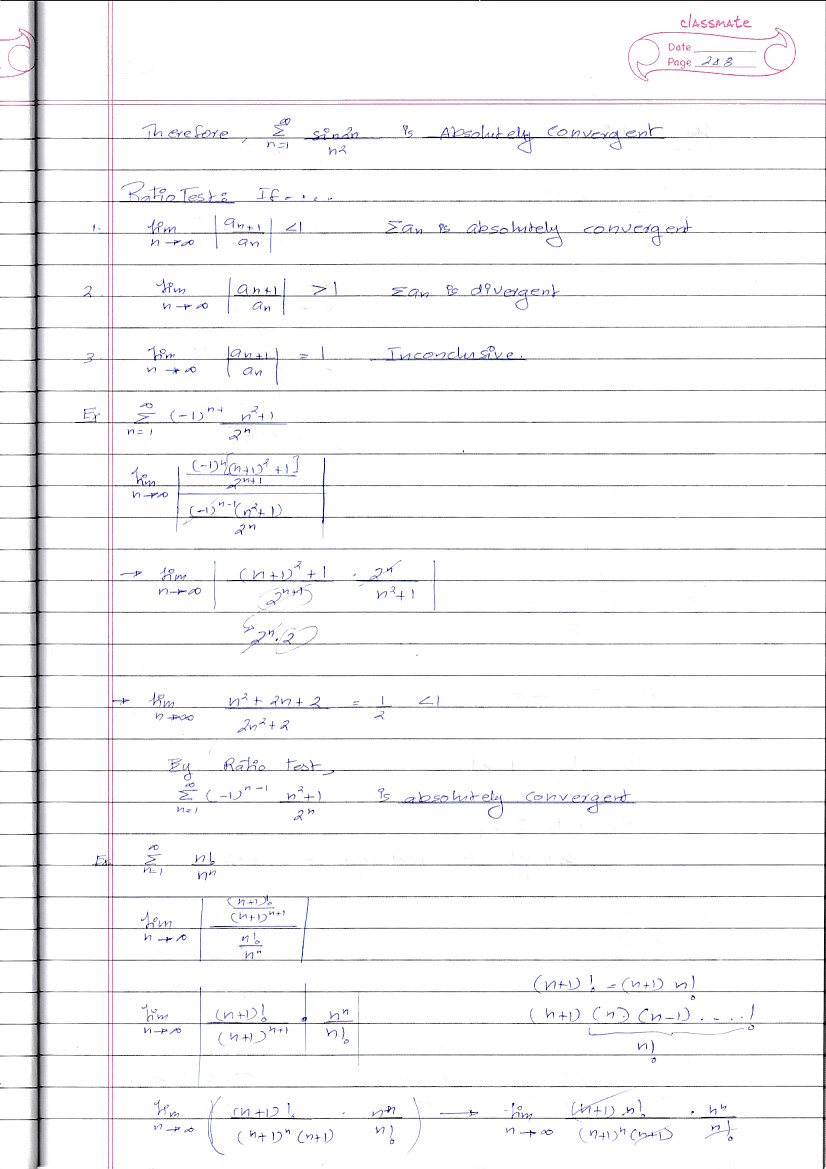 classmate
Date
Page 288
Therefore, ∞ Σ n=1 sin2n / n2 is Absolutely Convergent
Ratio Test: If....
1. lim n→∞ |an+1 / an| <1 Σan is absolutely convergent
2 lim n→∞ |an+1 / an| >1 Σan is divergent
3. lim n→∞ |an+1 / an| = 1 Inconclusive.
Ex ∞ Σ n=1 (-1)^n+ n²+1 / 2^n
lim n→∞ | (-1)^n[(n+1)²+1] / 2^n+1 / (-1)^n-1(n²+1) / 2^n |
→ lim n→∞ | (n+1)²+1 / 2^n+1 · 2^n / n²+1 |
2^n.2
→ lim n→∞ n²+2n+2 / 2n²+2 = 1/2 <1
By Ratio test,
∞ Σ n=1 (-1)^n-1 n²+1 / 2^n is absolutely convergent
Ex ∞ Σ n=1 n! / n^n
lim n→∞ | (n+1)! / (n+1)^n+1 / n! / n^n |
(n+1)! = (n+1) n!
lim n→∞ | (n+1)! / (n+1)^n+1 · n^n / n! | (n+1) (n) (n-1) ....!
n!
lim n→∞ ( (n+1)! / (n+1)^n (n+1) · n^n / n! ) → lim n→∞ (n+1) n! / (n+1)^n (n+1) · n^n / n!